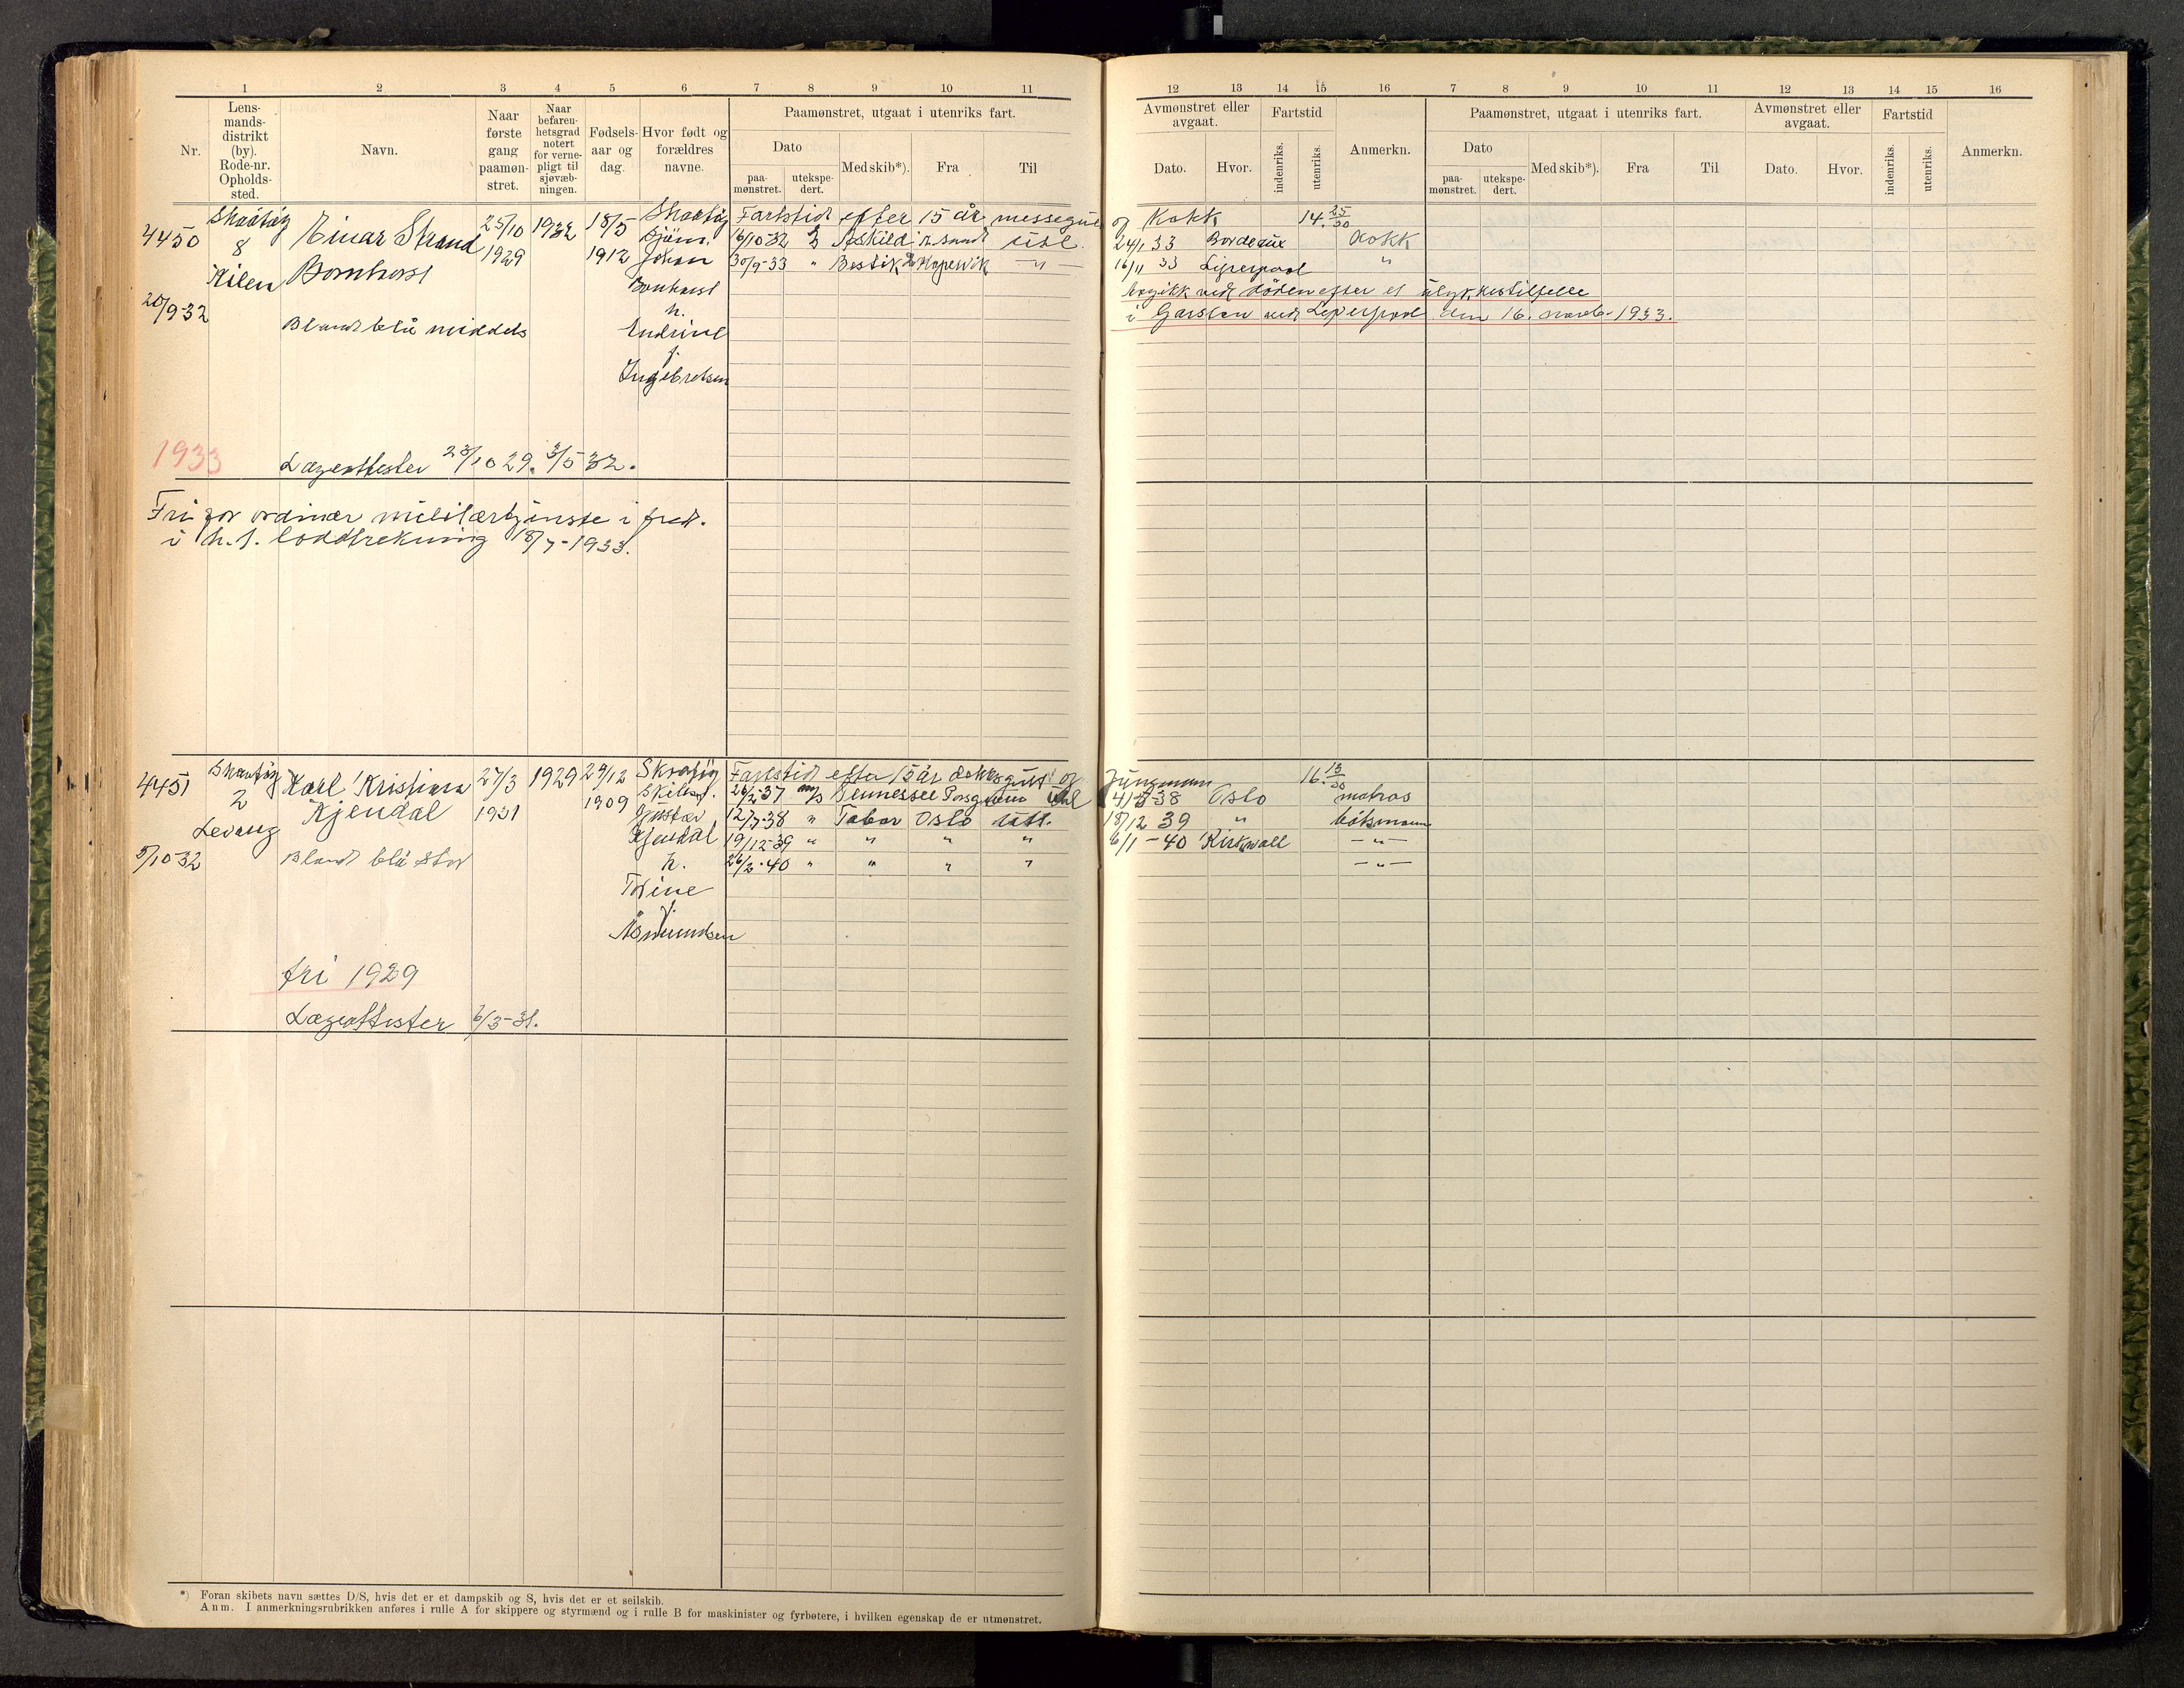 1 2 3 4 5 6 7 8 9 10 11
Nr.
Lens-
mands-
distrikt
(by).
Rode-nr.
Opholds-
sted.
Navn.
Naar
første
gang
paamøn-
stret.
Naar
befaren-
hetsgrad
notert
for verne-
pligt til
sjøvæb-
ningen.
Fødsels-
aar og
dag.
Hvor født og
forældres
navne.
Paamønstret, utgaat i utenriks fart.
Dato
paa-
mønstret.
utekspe-
dert.
Med skib*).
Fra
Til
4450
Skåtøy
8
Kilen
20/9-32
Einar Strand
Bornhorst
Blondt blå middels
25/10
1929
1932
18/5
1912
Skåtøy
Johan
Bonhorst
h.
Endrine
f.
Ingebretsen
Fartstid efter 15 år messegut
6/10-32 Askild utl.
30/9-33 " Bestik Kopervik — " —
1933
Lægeattester 23/10 29. 3/5 32.
Fri for ordinær militærtjenste i fred.
i h. t. loddtrekning 18/7-1933.
4451
Skåtøy
2
Levang
5/10-32
Karl Kristian
Kjendal
Blondt blå stor
27/3
1931
1929
29/12
1909
Skåtøy
Gustav
Kjendal
h.
Tomine
f.
Åsmundsen
Fartstid efter 15 år dekksgutt og
26/2-37 m/s Tennessee Porsgrunn Utl
12/7-38 " Tabor Oslo utl.
19/12-39 " " " "
26/2-40 " " " "
fri 1929
Lægeattester 6/3-31.
*) Foran skibets navn sættes D/S, hvis det er et dampskib og S, hvis det er et seilskib.
Anm. I anmerkningsrubrikken anføres i rulle A for skippere og styrmænd og i rulle B for maskinister og fyrbøtere, i hvilken egenskap de er utmønstret.
12 13 14 15 16 7 8 9 10 11 12 13 14 15 16
Avmønstret eller
avgaat.
Dato.
Hvor.
Fartstid
indenriks.
utenriks.
Anmerkn.
Paamønstret, utgaat i utenriks fart.
Dato
paa-
mønstret.
utekspe-
dert.
Med skib*).
Fra
Til
Avmønstret eller
avgaat.
Dato.
Hvor.
Fartstid
indenriks.
utenriks.
Anmerkn.
og Kokk 14. 25/30
24/1 33 Bordeaux Kokk
16/11 33 Liverpool "
avgikk ved døden efter et ulykkestilfelle
i Garston ved Liverpool den 16. novb. 1933.
Jungmann 16. 13/30
4/3-38 Oslo matros
18/12 39 " båtsmann
6/1-40 Kirkwall — " —
— " —